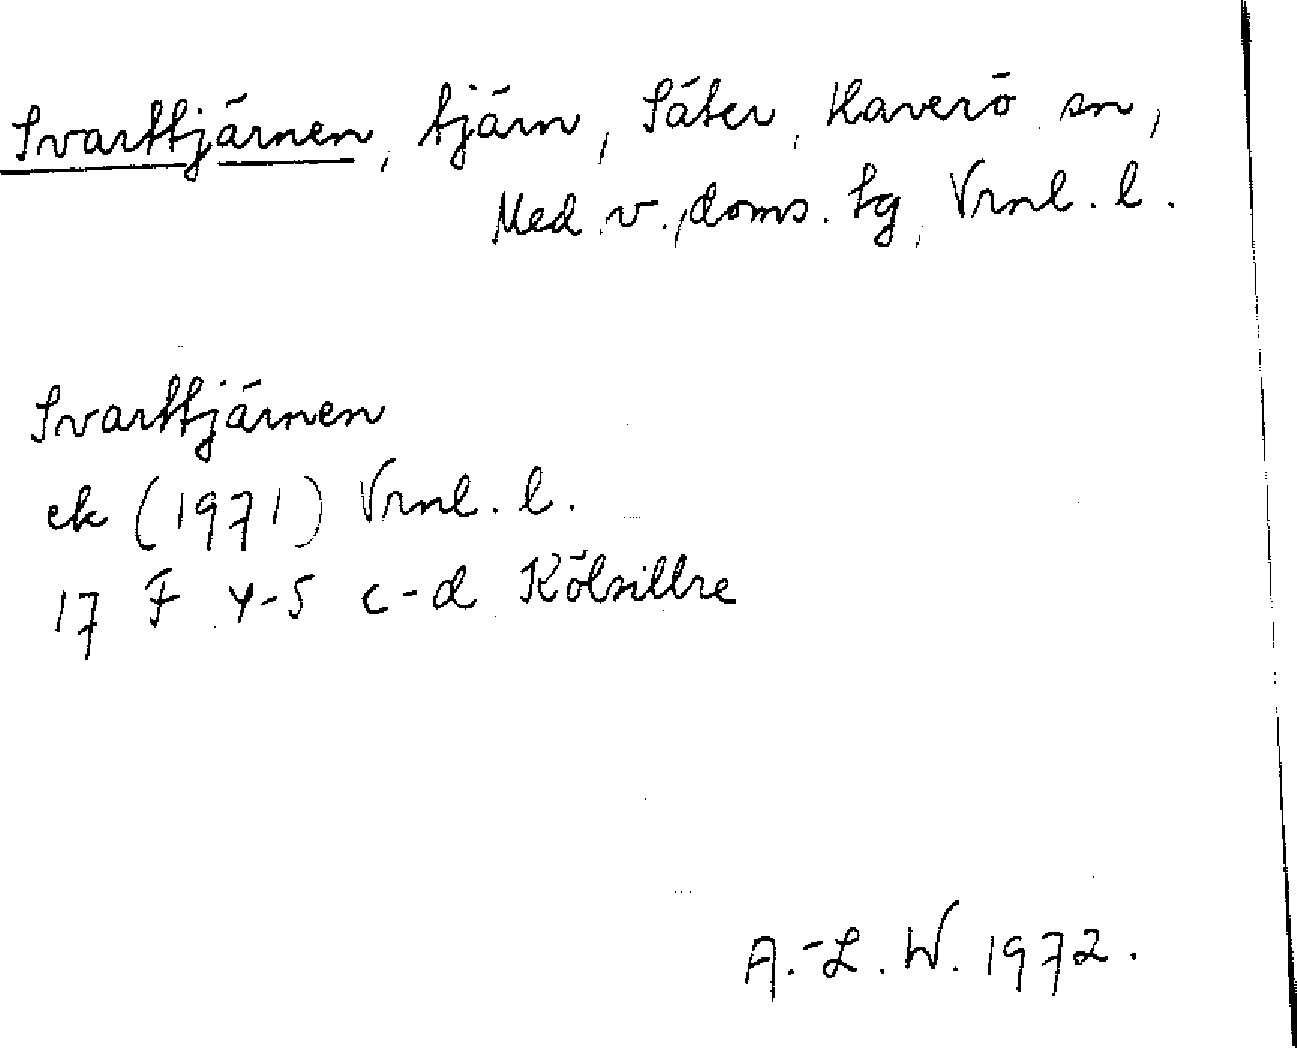 Svarttjärnen, tjärn, Säter, Haverö sn,
Med. v. doms. tg, Vrnl. l.
Svarttjärnen
ek (1971) Vrnl. l.
17 F 4-5 c-d Kölsillre
A.-L. W. 1972.